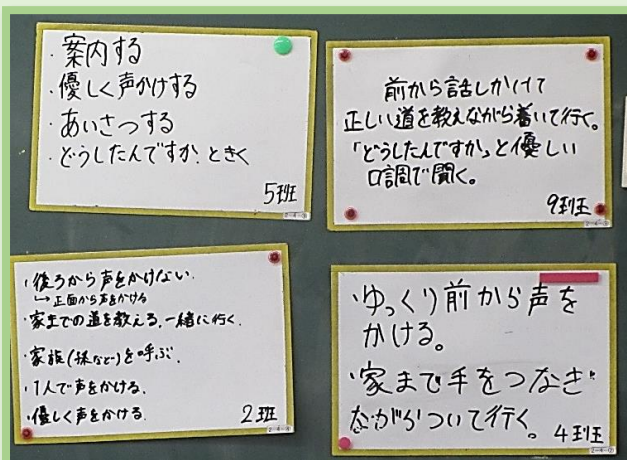 ・案内する
・優しく声かけする
・あいさつする
・どうしたんですか、ときく
5班
前から話しかけて
正しい道を教えながら着いて行く。
「どうしたんですか」と優しい
口調で聞く。
9班
・後ろから声をかけない。
→正面から声をかける
・家までの道を教える、一緒に行く。
・家族(孫など)を呼ぶ。
・1人で声をかける。
・優しく声をかける。
2班
・ゆっくり前から声を
かける。
・家まで手をつなぎ
ながらついて行く。
4班